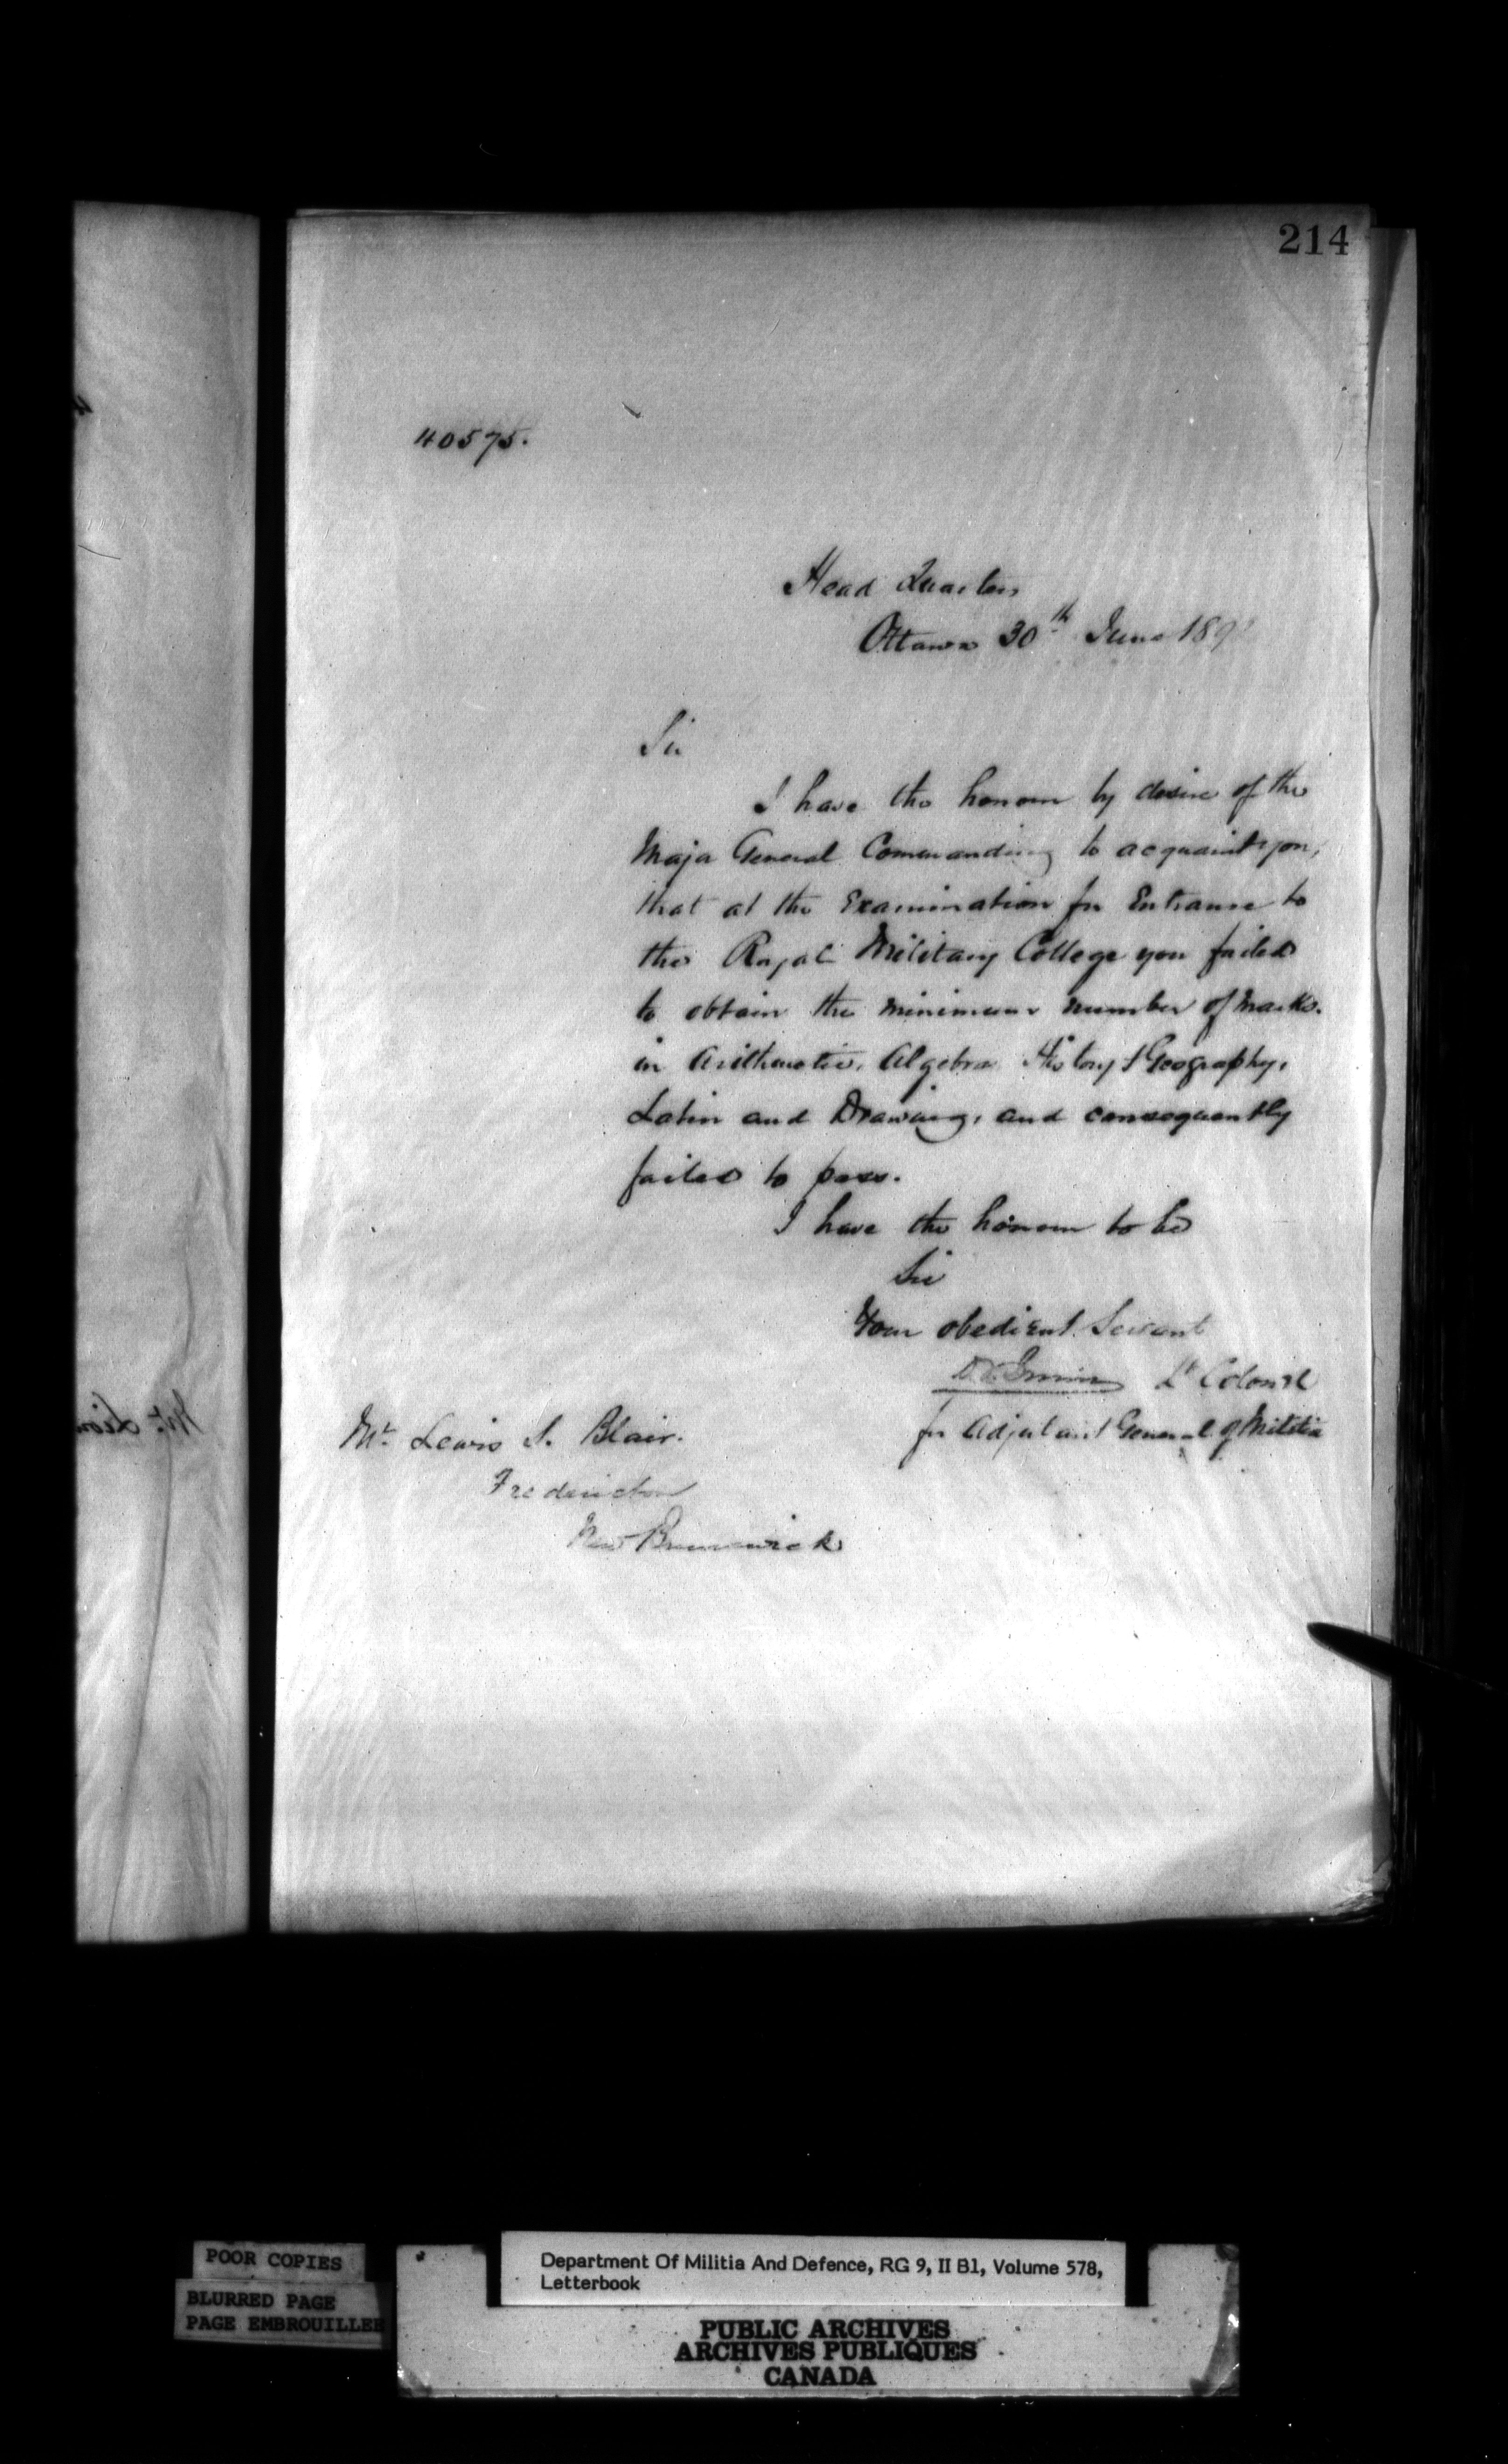 214
40575.
Head Quarters
Ottawa 30th June 189
Sir
I have the honour by desire of the
Major General Commanding to acquaint you,
that at the Examination for Entrance to
the Royal Military College you failed
to obtain the minimum number of marks.
in Arithmetic, Algebra History & Geography,
Latin and Drawing, and consequently
failed to pass.
I have the honour to be
Sir
Your obedient Servant
Lt Colonel
for Adjutant General of Militia
Mr. Lewis S. Blair.
Fredericton
New Brunswick
POOR COPIES
BLURRED PAGE
PAGE EMBROUILLEE
Department Of Militia And Defence, RG 9, II B1, Volume 578,
Letterbook
PUBLIC ARCHIVES
ARCHIVES PUBLIQUES
CANADA